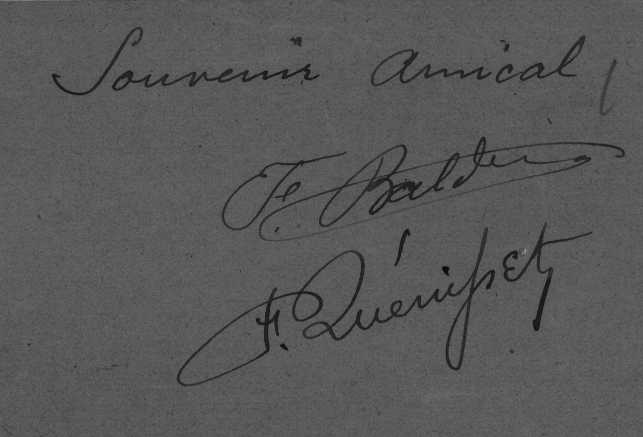 Souvenir amical
F. Baldet
F. Quénisset